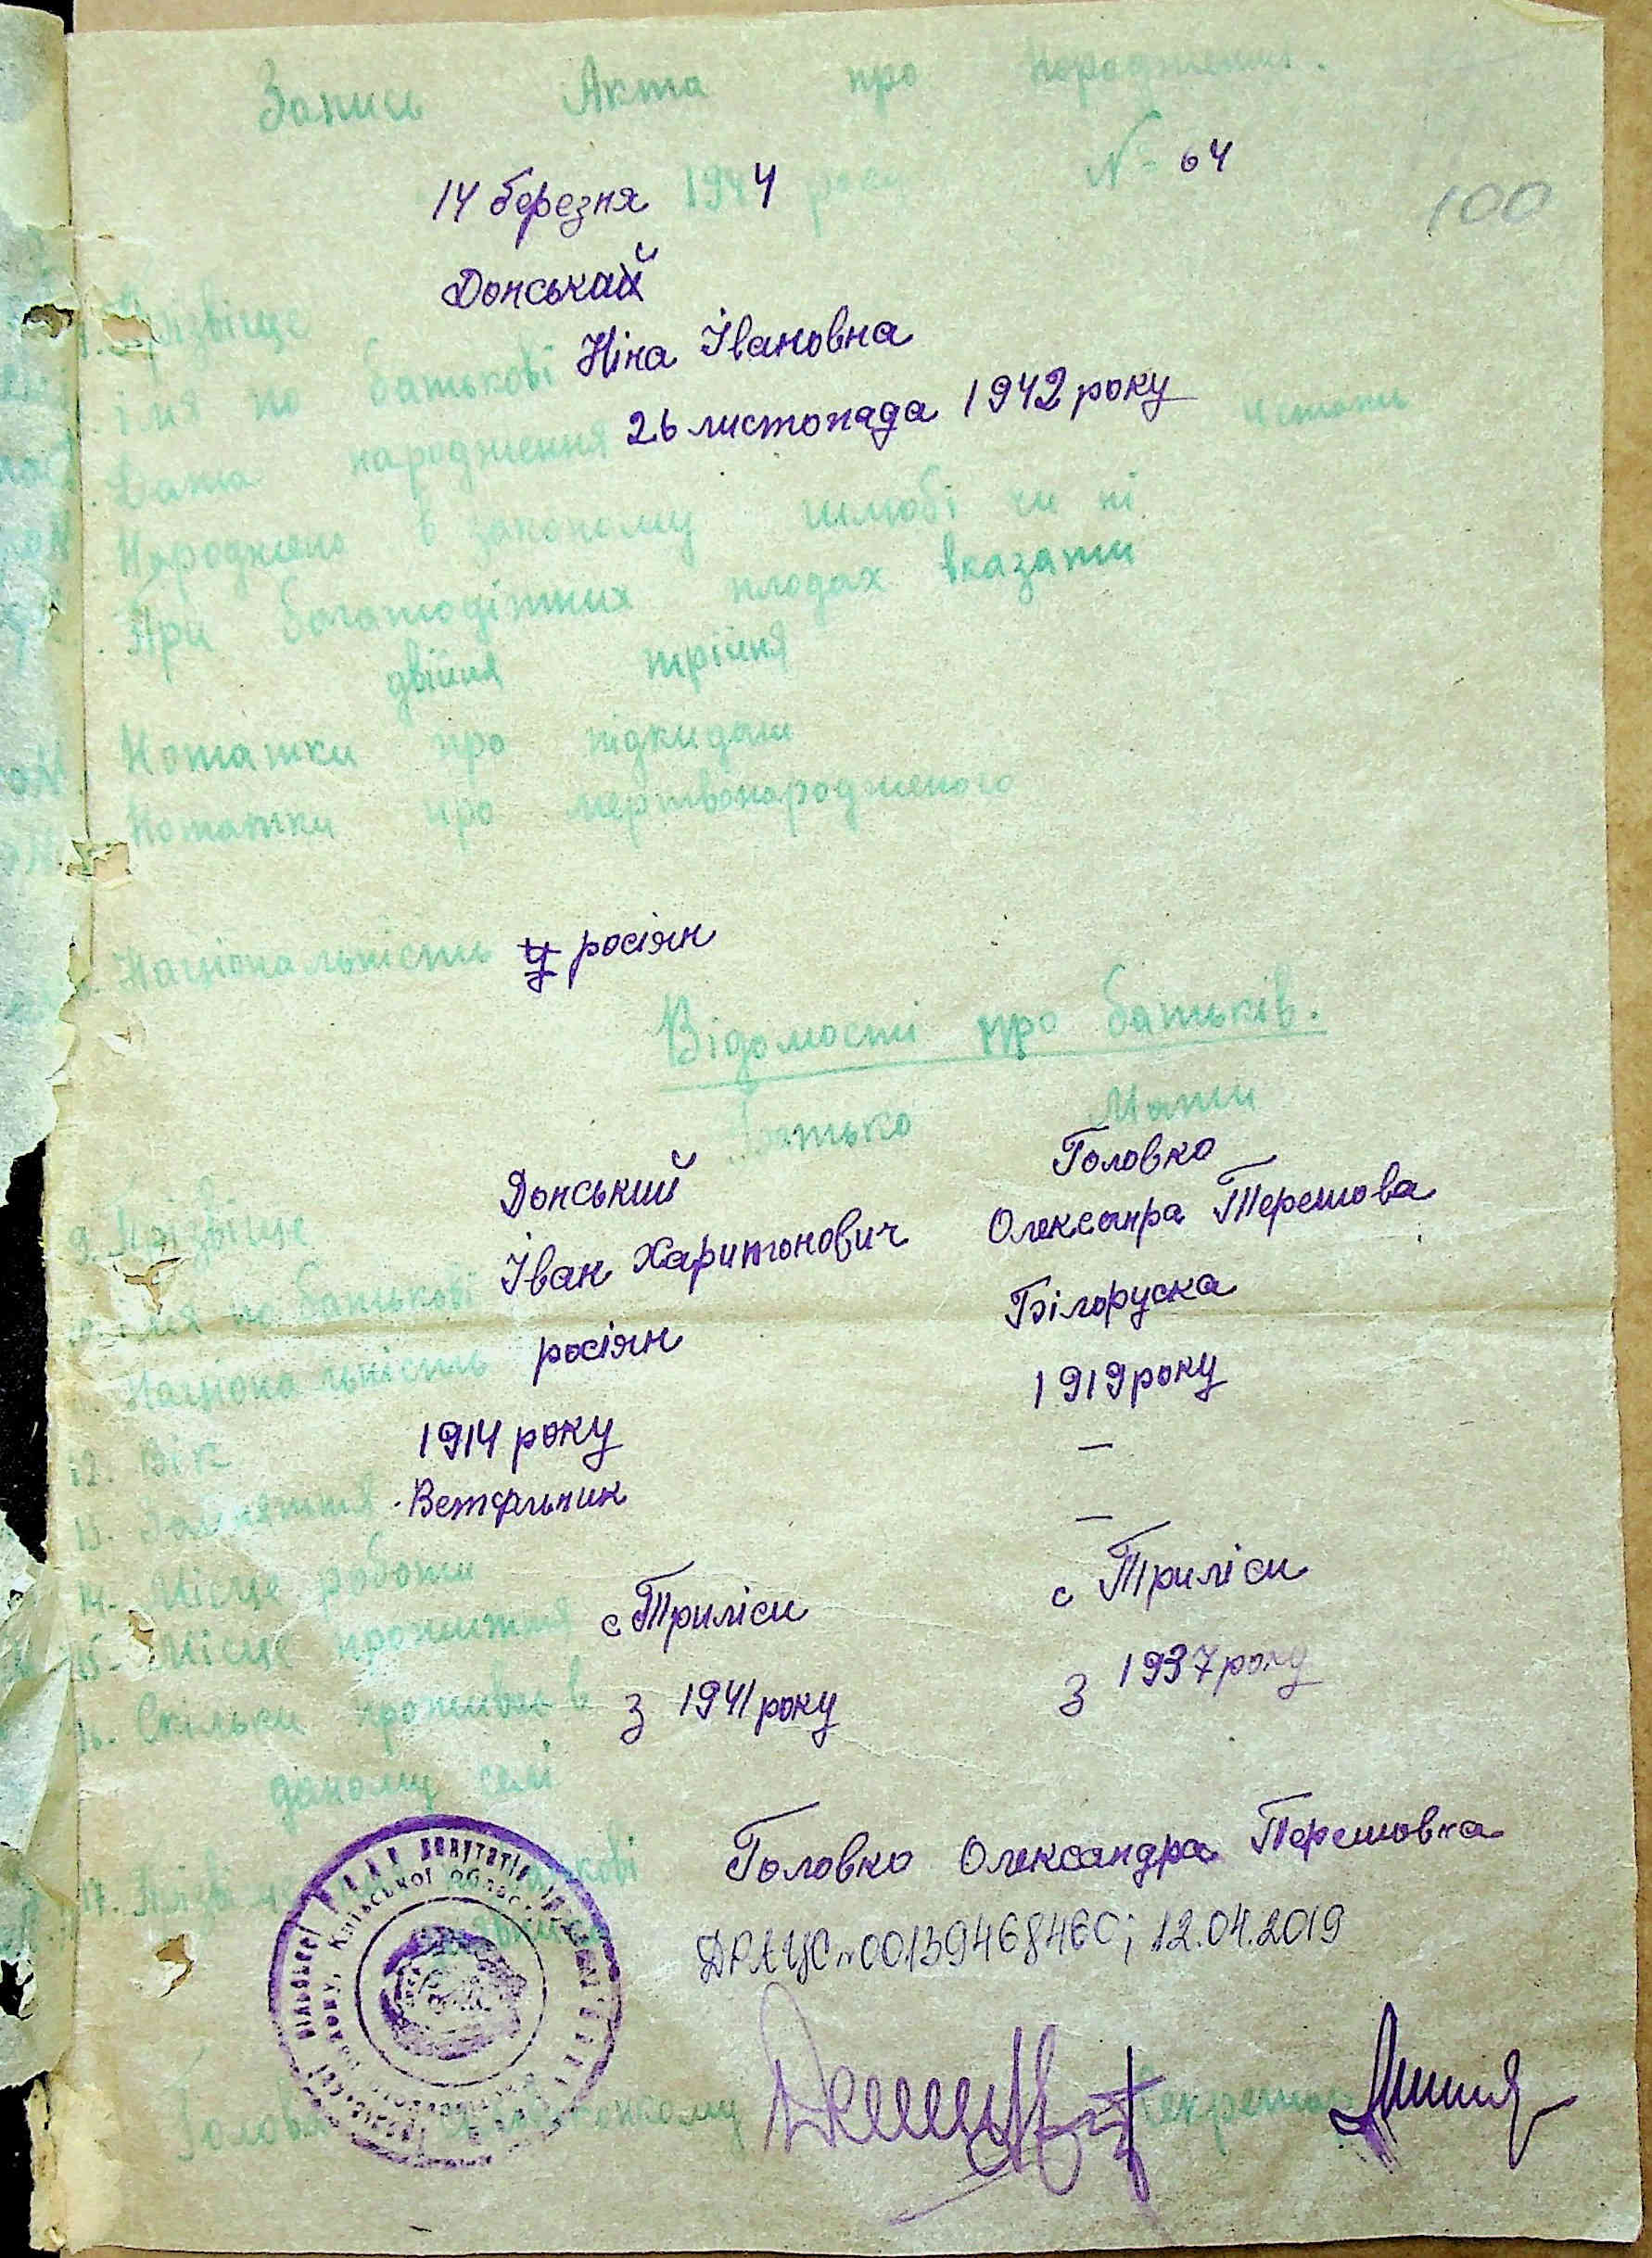 Запис Акта про народження.
14 березня 1944 року № 64
100
Донський
1. Прізвище
імя по батькові Ніна Івановна
Дата народження 26 листопада 1942 року
Народжено в законому шлюбі чи ні
При богатодітних плодах вказати
двійня трійня
Нотатки про підкидаш
Нотатки про мертвонародженого
Національність у росіян
Відомости про батьків.
Батько Мати
9. Прізвище Донський Головко
імя по батькові Іван Харитонович Олександра Терешова
Національність росіян Білоруска
12. Вік 1914 року 1919 року
13. Заняття Ветфельник —
14. Місце роботи —
15. Місце прожиття с Триліси с Триліси
16. Скільки проживає в з 1941 року з 1937 року
даному селі
17. Головко Олександра Терешовна
ДРАЦС №00139468460; 12.04.2019
Голова Секретар